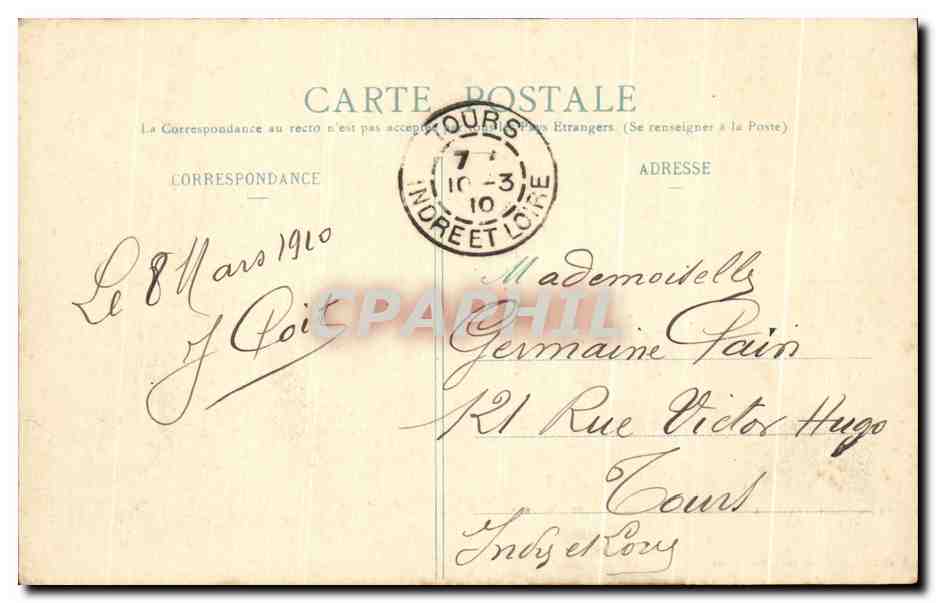 CARTE POSTALE
La Correspondance au recto n'est pas acceptée par tous les Pays Etrangers. (Se renseigner à la Poste)
CORRESPONDANCE
ADRESSE
TOURS
7
10 -3
10
INDRE ET LOIRE
Le 8 Mars 1910
CPAPHIL
Mademoiselle
Germaine Pain
121 Rue Victor Hugo
Tours
Indre et Loire